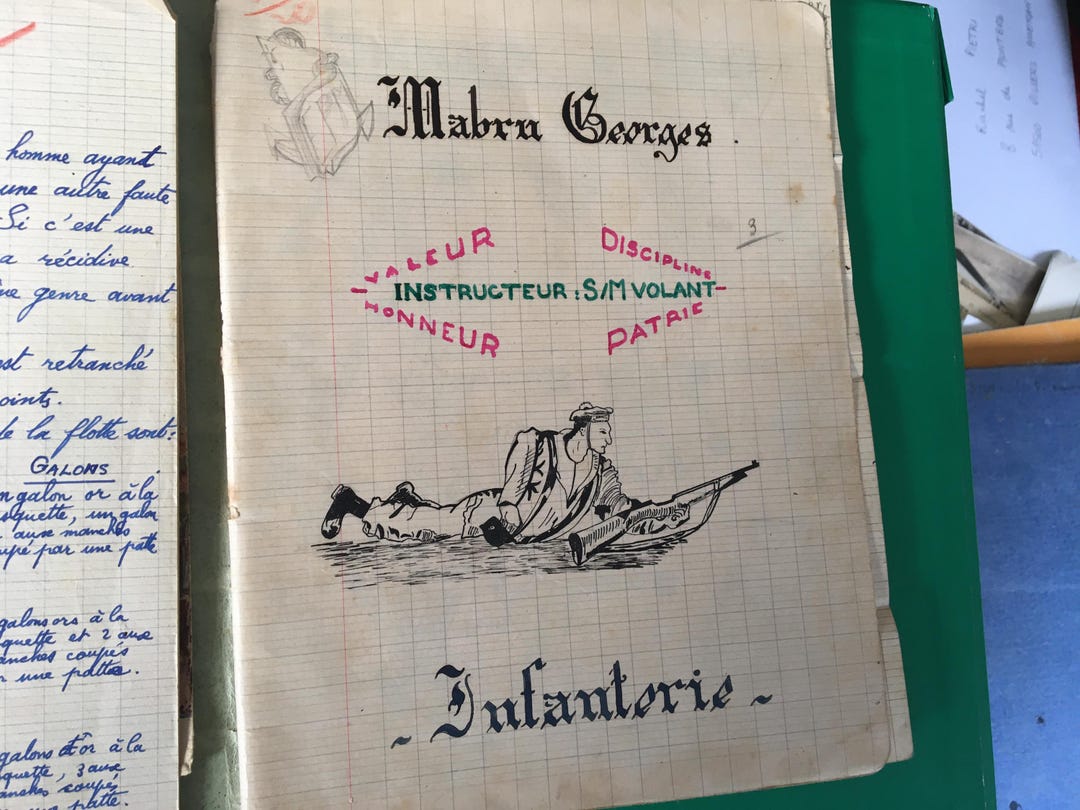 homme ayant
une autre faute
Si c'est une
a récidive
genre avant
est retranché
oints.
de la flotte sont:
GALONS
n galon or à la
squette, un galon
aux manches
upé par une patte
galons ors à la
quette et 2 aux
anches coupés
r une patte.
galons d'or à la
quette, 3 aux
anches coupés
une patte.
Mabru Georges.
3
VALEUR DISCIPLINE
INSTRUCTEUR : S/M VOLANT
HONNEUR PATRIE
- Infanterie -
PIETRI
8 rue de